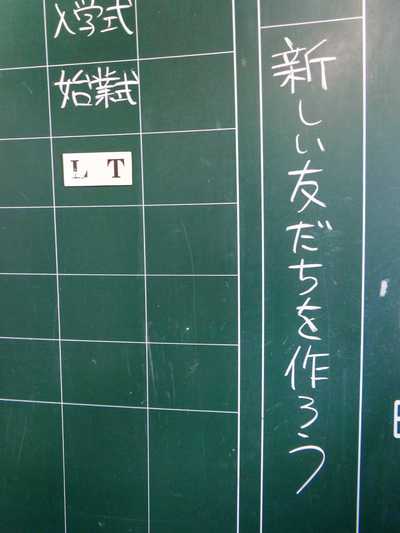 新しい友だちを作ろう
入学式
始業式
LT